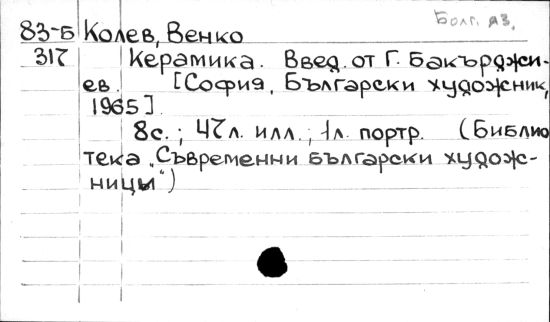 Болг. яз.
83-Б Колев, Венко
317 Керамика.Введ. от Г. Бакърджи-
ев. [София, Български художник,
1965].
8с.; 47л. илл.; 1л. портр. (Библио
тека „Съвременни български худож-
ницы“)